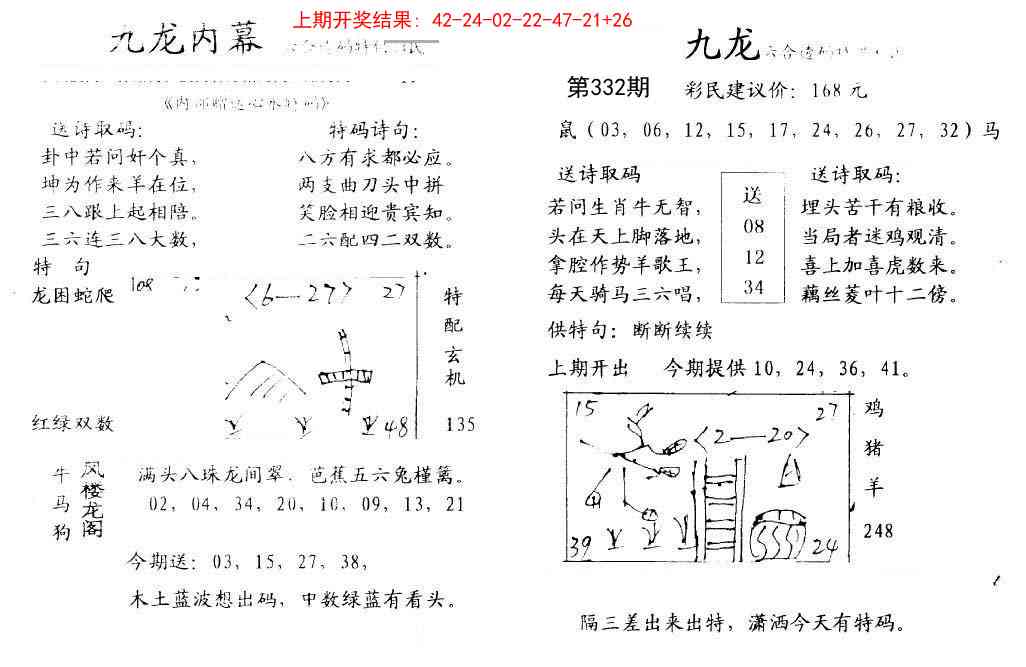 上期开奖结果：42-24-02-22-47-21+26
九龙内幕
送诗取码：
卦中若问奸个真，
坤为作来羊在位，
三八跟上起相陪。
三六连三八大数，
特码诗句：
八方有求都必应。
两支曲刀头中拼
笑脸相迎贵宾知。
二六配四二双数。
特 句
龙困蛇爬
红绿双数
108
<6—27>
27
48
特配玄机
135
牛马狗
风楼龙阁
满头八珠龙间翠．芭蕉五六兔槿篱。
02，04，34，20，10，09，13，21
今期送：03，15，27，38，
木土蓝波想出码，中数绿蓝有看头。
九龙
第332期
彩民建议价：168元
鼠（03，06，12，15，17，24，26，27，32）马
送诗取码
若问生肖牛无智，
头在天上脚落地，
拿腔作势羊歌王，
每天骑马三六唱，
送
08
12
34
送诗取码：
埋头苦干有粮收。
当局者迷鸡观清。
喜上加喜虎数来。
藕丝菱叶十二傍。
供特句：断断续续
上期开出 今期提供10，24，36，41。
15
27
<2—20>
39
24
鸡
猪
羊
248
隔三差出来出特，潇洒今天有特码。